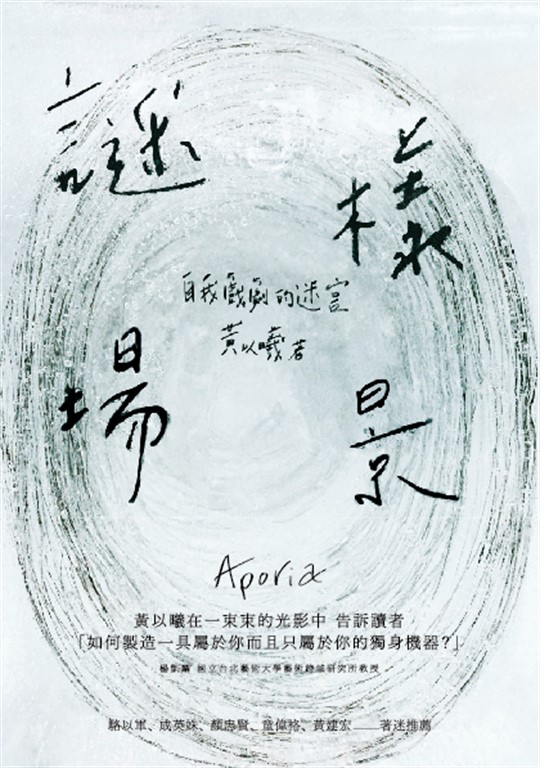 謎樣
場景
自我戲劇的迷宮
黃以曦 著
Aporia
黃以曦在一束束的光影中 告訴讀者
「如何製造一具屬於你而且只屬於你的獨身機器?」
楊凱麟 國立台北藝術大學藝術跨域研究所教授
駱以軍、成英姝、顏忠賢、童偉格、黃建宏——著迷推薦